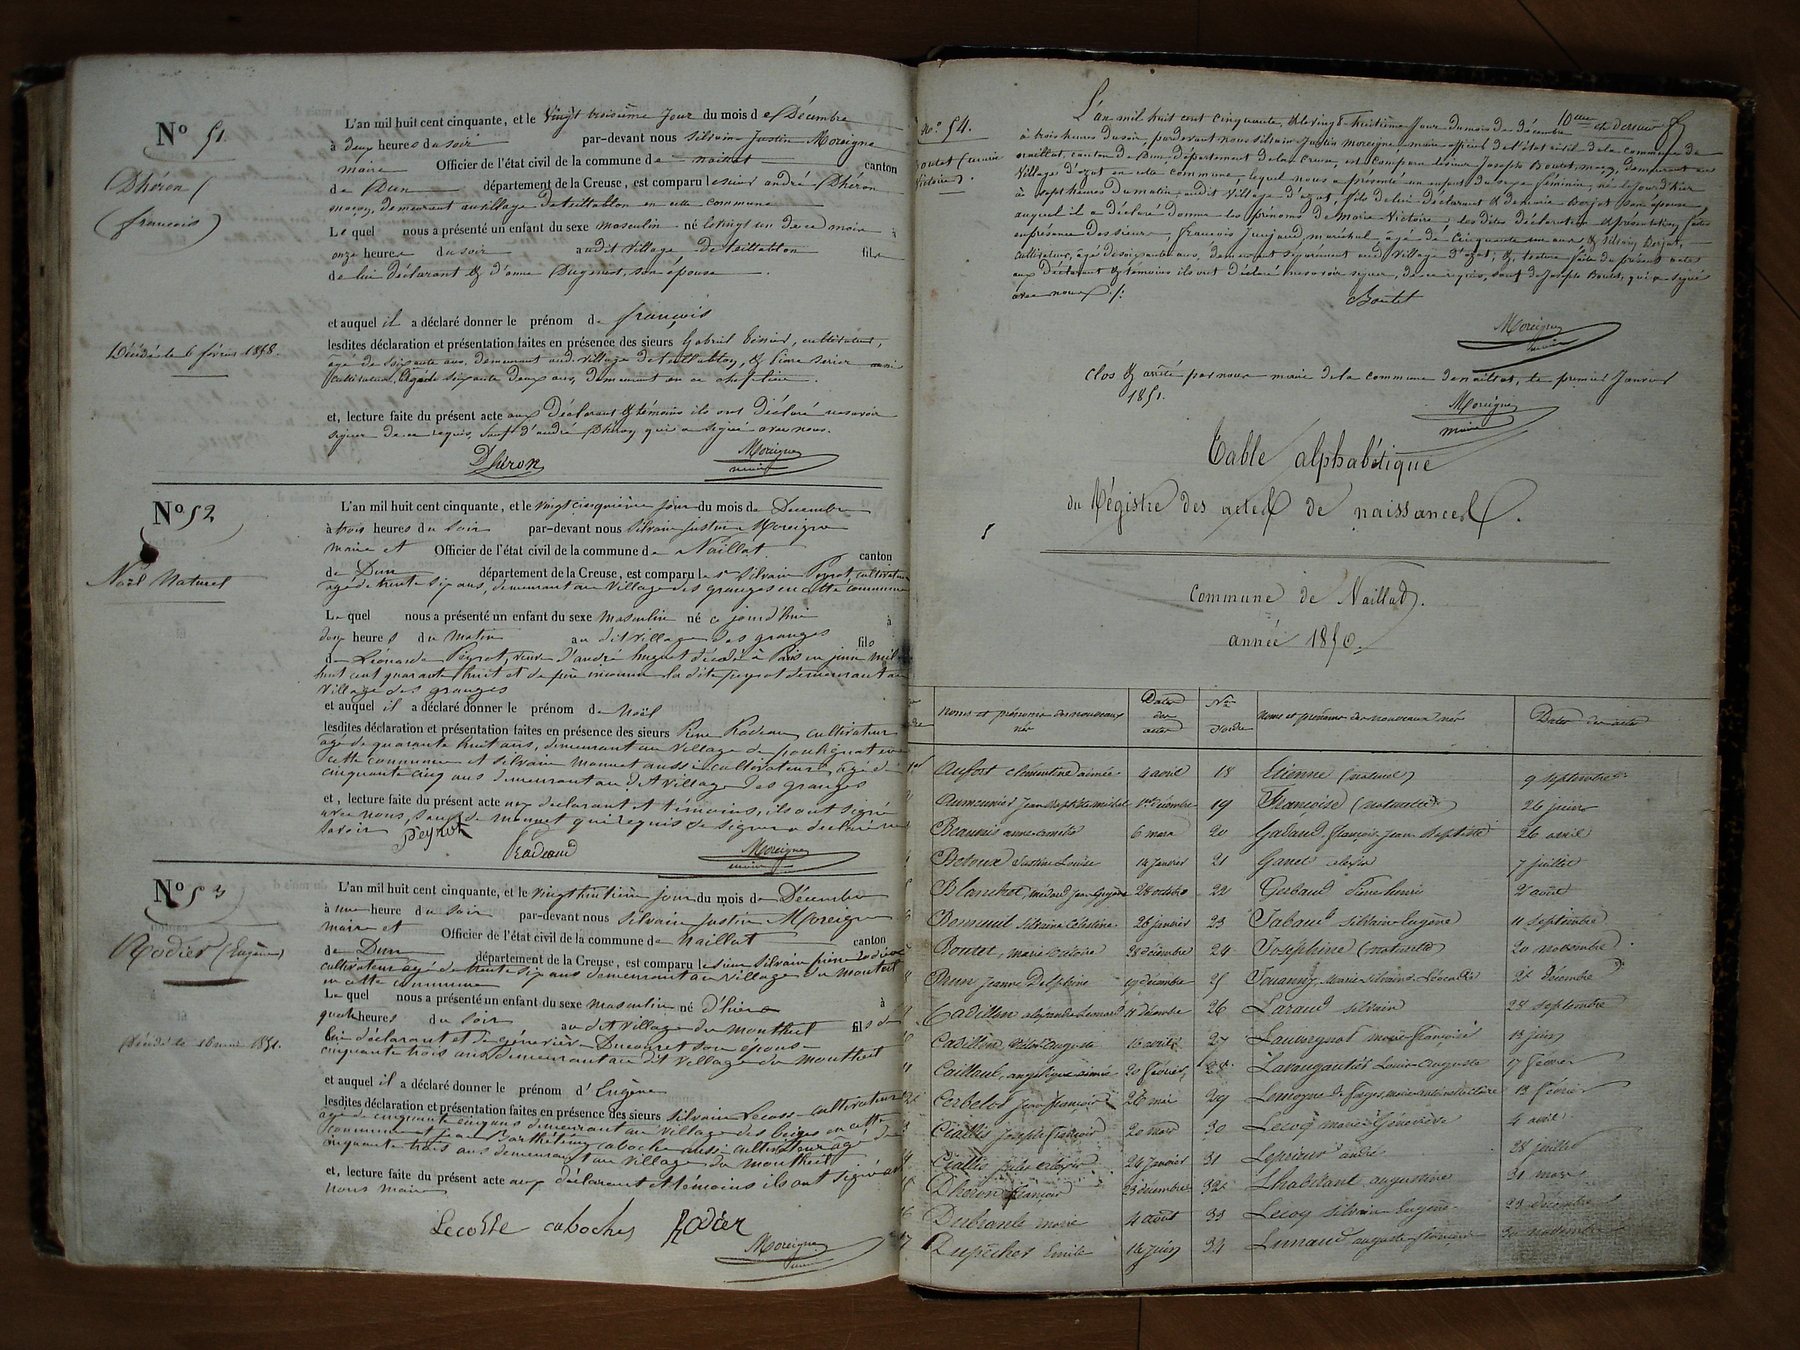 No 51.
Dhéron
(françois)
Décédé le 6 février 1858.
L'an mil huit cent cinquante, et le vingt troisième jour du mois de Décembre
à deux heures du soir par-devant nous Silvain Justin Moreigne
maire Officier de l'état civil de la commune de naillat canton
de Dun département de la Creuse, est comparu le sieur andré Dhéron
maçon, demeurant au village de en cette commune
Lequel nous a présenté un enfant du sexe masculin né le vingt un de ce mois à
onze heures du soir audit village de fils
de lui déclarant & d'anne son épouse.
et auquel il a déclaré donner le prénom de françois
lesdites déclaration et présentation faites en présence des sieurs Gabriel cultivateur,
âgé de soixante ans, demeurant aud. village de & Pierre
cultivateur, âgé de soixante deux ans, demeurant en ce chef-lieu.
et, lecture faite du présent acte aux Déclarant & témoins ils ont déclaré ne savoir
signer de ce requis, sauf d'andré Dhéron qui a signé avec nous.
Dhéron Moreigne
maire
No 52
Noël Naturel
L'an mil huit cent cinquante, et le vingt cinquième jour du mois de Decembre
à trois heures du soir par-devant nous Silvain Justin Moreigne
maire et Officier de l'état civil de la commune de Naillat canton
de Dun département de la Creuse, est comparu le sr Silvain Peyrot, cultivateur
âgé de trente six ans, demeurant au village des granges en cette commune
Lequel nous a présenté un enfant du sexe masculin né ce jourd'hui à
deux heures du matin au dit village des granges fils
de Léonarde Peyrot, veuve d'andré huguet décédé à Paris en juin mil
huit cent quarante huit et de père inconnu la dite peyrot demeurant au
village des granges
et auquel il a déclaré donner le prénom de Noël
lesdites déclaration et présentation faites en présence des sieurs Pierre Radeau cultivateur
âgé de quarante huit ans, demeurant au village de en
cette commune et silvain monnet aussi cultivateur, âgé de
cinquante cinq ans demeurant au dit village des granges
et, lecture faite du présent acte aux déclarant et témoins, ils ont signé
avec nous, sauf de monnet qui requis de signer a déclaré ne
savoir
peyrot Radeaud Moreigne
maire
No 53
Rodier (Eugène)
Décédé le 16 mai 1851.
L'an mil huit cent cinquante, et le vingt huitième jour du mois de Décembre
à une heure du soir par-devant nous silvain Justin Moreigne
maire et Officier de l'état civil de la commune de Naillat canton
de Dun département de la Creuse, est comparu le sieur silvain pierre Rodier
cultivateur âgé de trente six ans demeurant au village du montheil
en cette commune
Lequel nous a présenté un enfant du sexe masculin né D'hier à
quatre heures du soir au dit village du montheil fils de
lui déclarant et de geneviève Ducouret son épouse
cinquante trois ans demeurant au dit village du montheil
et auquel il a déclaré donner le prénom d'Eugène
lesdites déclaration et présentation faites en présence des sieurs silvain Lecosse cultivateur
âgé de cinquante cinq ans demeurant au village des beiges en cette
commune et caboche aussi cultivateur âgé de
cinquante trois ans demeurant au village du montheil
et, lecture faite du présent acte aux déclarant et témoins ils ont signé avec
nous maire
Lecosse caboches Rodier
Moreigne
maire
No. 54.
Boutet (marie
Victoire).
10eme & dernier
L'an mil huit cent cinquante, & le vingt-huitième jour du mois de Décembre
à trois heures du soir, pardevant nous Silvain Justin moreigne maire officier de l'état civil de la commune de
naillat, canton de Dun, département de la Creuse, est comparu le sieur Joseph Boutet maçon, demeurant au
village d'ezat en cette commune, lequel nous a présenté un enfant du sexe féminin, né le jour d'hier
à sept heures du matin audit village d'ezat, fils de lui déclarant & de marie Borjot son épouse,
auquel il a déclaré donner les prénoms de Marie Victoire; les dites déclaration & présentation faites
en présence des sieurs françois Junjaud, maréchal, âgé de cinquante un ans & Silvain Borjot,
cultivateur, âgé de soixante ans, demeurant séparément aud. village d'ezat; &, lecture faite du présent acte
aux déclarant & témoins ils ont déclaré ne savoir signer, de ce requis, sauf de Joseph Boutet, qui a signé
avec nous
Boutet
Moreigne
maire
Clos & arrêté par nous maire de la commune de naillat, le premier Janvier
1851.
Moreigne
maire
Table alphabétique
du Régistre des actes de naissances.
Commune de Naillat.
année 1850.
Noms et prénoms des nouveaux nés Dates des actes Nos d'ordre Noms et prénoms des nouveaux nés Dates des actes
1er Aufort clémentine aimée 4 avril 18 Etienne (naturel) 9 septembre
Aumeunier jean Baptiste michel 1er Décembre 19 Françoise (naturelle) 26 juin
Beaunis anne 6 mars 20 Galaud françois Jean Baptiste 26 avril
Justine Louise 14 janvier 21 Ganet 7 juillet
Blanchot, médard jean 28 octobre 22 Gerbaud Pierre henri 2 août
Bonneuil silvaine célestine 26 janvier 23 Jabaud silvain Eugène 11 septembre
Boutet, marie victoire 28 décembre 24 Joséphine (naturelle) 20 novembre
Brun Jeanne Delphine 19 décembre 25 Jouanny Marie silvaine Léocadie 25 Décembre
Cadillon alexandre Léonard 11 décembre 26 Laraud silvain 28 septembre
Cadillon, auguste 16 avril 27 marie françoise 13 juin
Caillaud, angélique aimée 20 février 28 Lavaugautier Louis auguste 17 février
Cerbelot jean françois 26 mai 29 Lemoyne de Forges, 13 février
Ciallis Joseph françois 20 mars 30 Lecoq marie Géneviève 4 avril
Ciallis jules 24 janvier 31 Leprieur andré 28 juillet
Dhéron françois 23 décembre 32 Lhabitant augustine 31 mars
Dubranle marie 4 août 33 Lecoq silvain Eugène 23 décembre
Dupéchet Emile 14 juin 34 Lunaud auguste 30 novembre